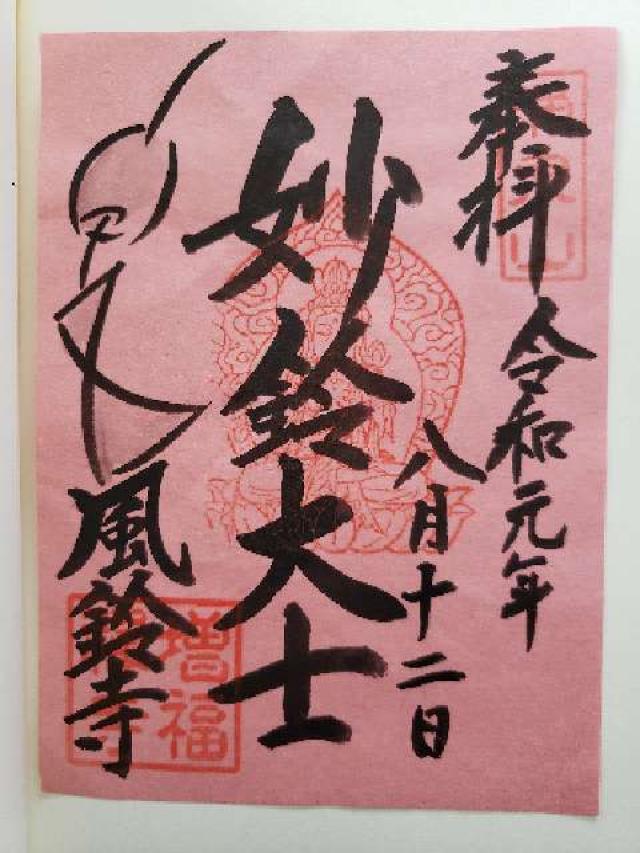 奉拝
令和元年
八月十二日
妙鈴大士
風鈴寺
増福